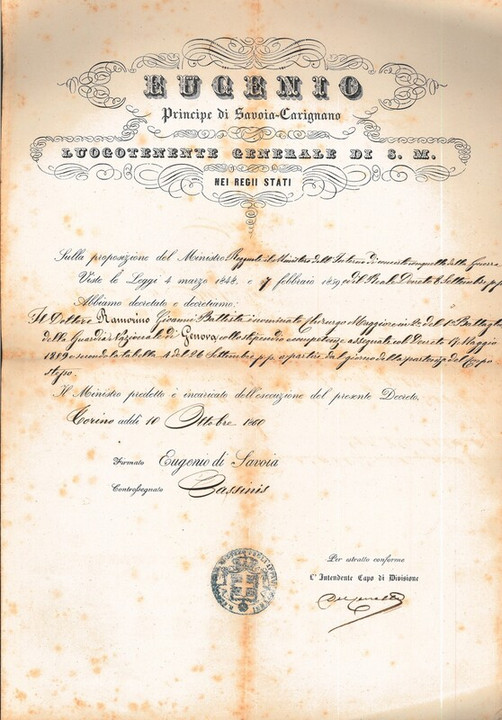 EUGENIO
Principe di Savoia-Carignano
LUOGOTENENTE GENERALE DI S. M.
NEI REGII STATI
Sulla proposizione del Ministro Reggente il Ministero dell'Interno di concerto con quello della Guerra
Viste le Leggi 4 marzo 1848 e 7 febbraio 1859 ed il Reale Decreto Settembre p.p.
Abbiamo decretato e decretiamo:
Il Dottore Ramorino Giovanni Battista è nominato Chirurgo Maggiore in 2º del 1º Battaglione
della Guardia Nazionale di Genova, collo stipendio e competenze assegnati col Decreto 17 Maggio
1859 secondo la tabella 4 del 26 Settembre p.p. a partire dal giorno della partenza del Corpo
stesso.
Il Ministro predetto è incaricato dell'esecuzione del presente Decreto.
Torino addì 10 Ottobre 1860
Firmato Eugenio di Savoia
Controssegnato Cassinis
Per estratto conforme
L'Intendente Capo di Divisione